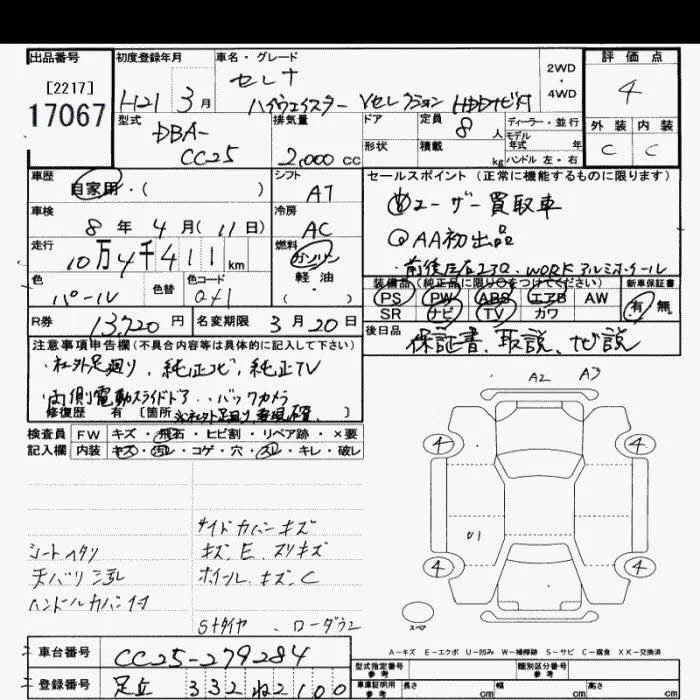 出品番号 初度登録年月 車名・グレード 評価点
[2217] 17067
H21 3月
セレナ
ハイウェイスター Vセレクション HDDナビ付
2WD・4WD
4
型式 DBA-CC25
排気量 2,000 cc
ドア 形状
定員 8人
積載 kg
ディーラー・並行
モデル年式 年式
ハンドル 左・右
外装 内装
C C
車歴 自家用・( )
シフト AT
車検 8年 4月(11日)
冷房 AC
走行 10万4千411km
燃料 ガソリン 軽油・( )
色 パール 色替 色コード 041
R券 13,720円 名変期限 3月20日
セールスポイント(正常に機能するものに限ります)
ユーザー買取車
AA初出品
・前後左右 WORK アルミホイール
装備品(純正品に限り○をつけてください) 新車保証書
PS PW ABS エアB AW 有・無
SR ナビ TV カワ
後日品 保証書、取説、ナビ説
注意事項申告欄(不具合内容等は具体的に記入して下さい)
・社外足廻り、純正ナビ、純正TV
・両側電動スライドドア、・バックカメラ
修復歴 有 [箇所 ※社外足廻り 車検不適 ]
検査員 FW キズ・飛石・ヒビ割・リペア跡・×要
記入欄 内装 キズ・汚レ・コゲ・穴・スレ・キレ・破レ
A2 A3
4 4
U1
4 4
スペア
サイドカバーキズ
シートヘタリ キズ、E、スリキズ
天バリ汚レ ホイールキズ、C
ハンドルカバー付
Sタイヤ、ローダウン
A-キズ E-エクボ U-凹み W-補修跡 S-サビ C-腐食 XX-交換済
車台番号 CC25-279284
登録番号 足立 332 ね 2100
型式指定番号 参考 類別区分番号 参考
車庫証明用 参考 長さ cm 幅 cm 高さ cm